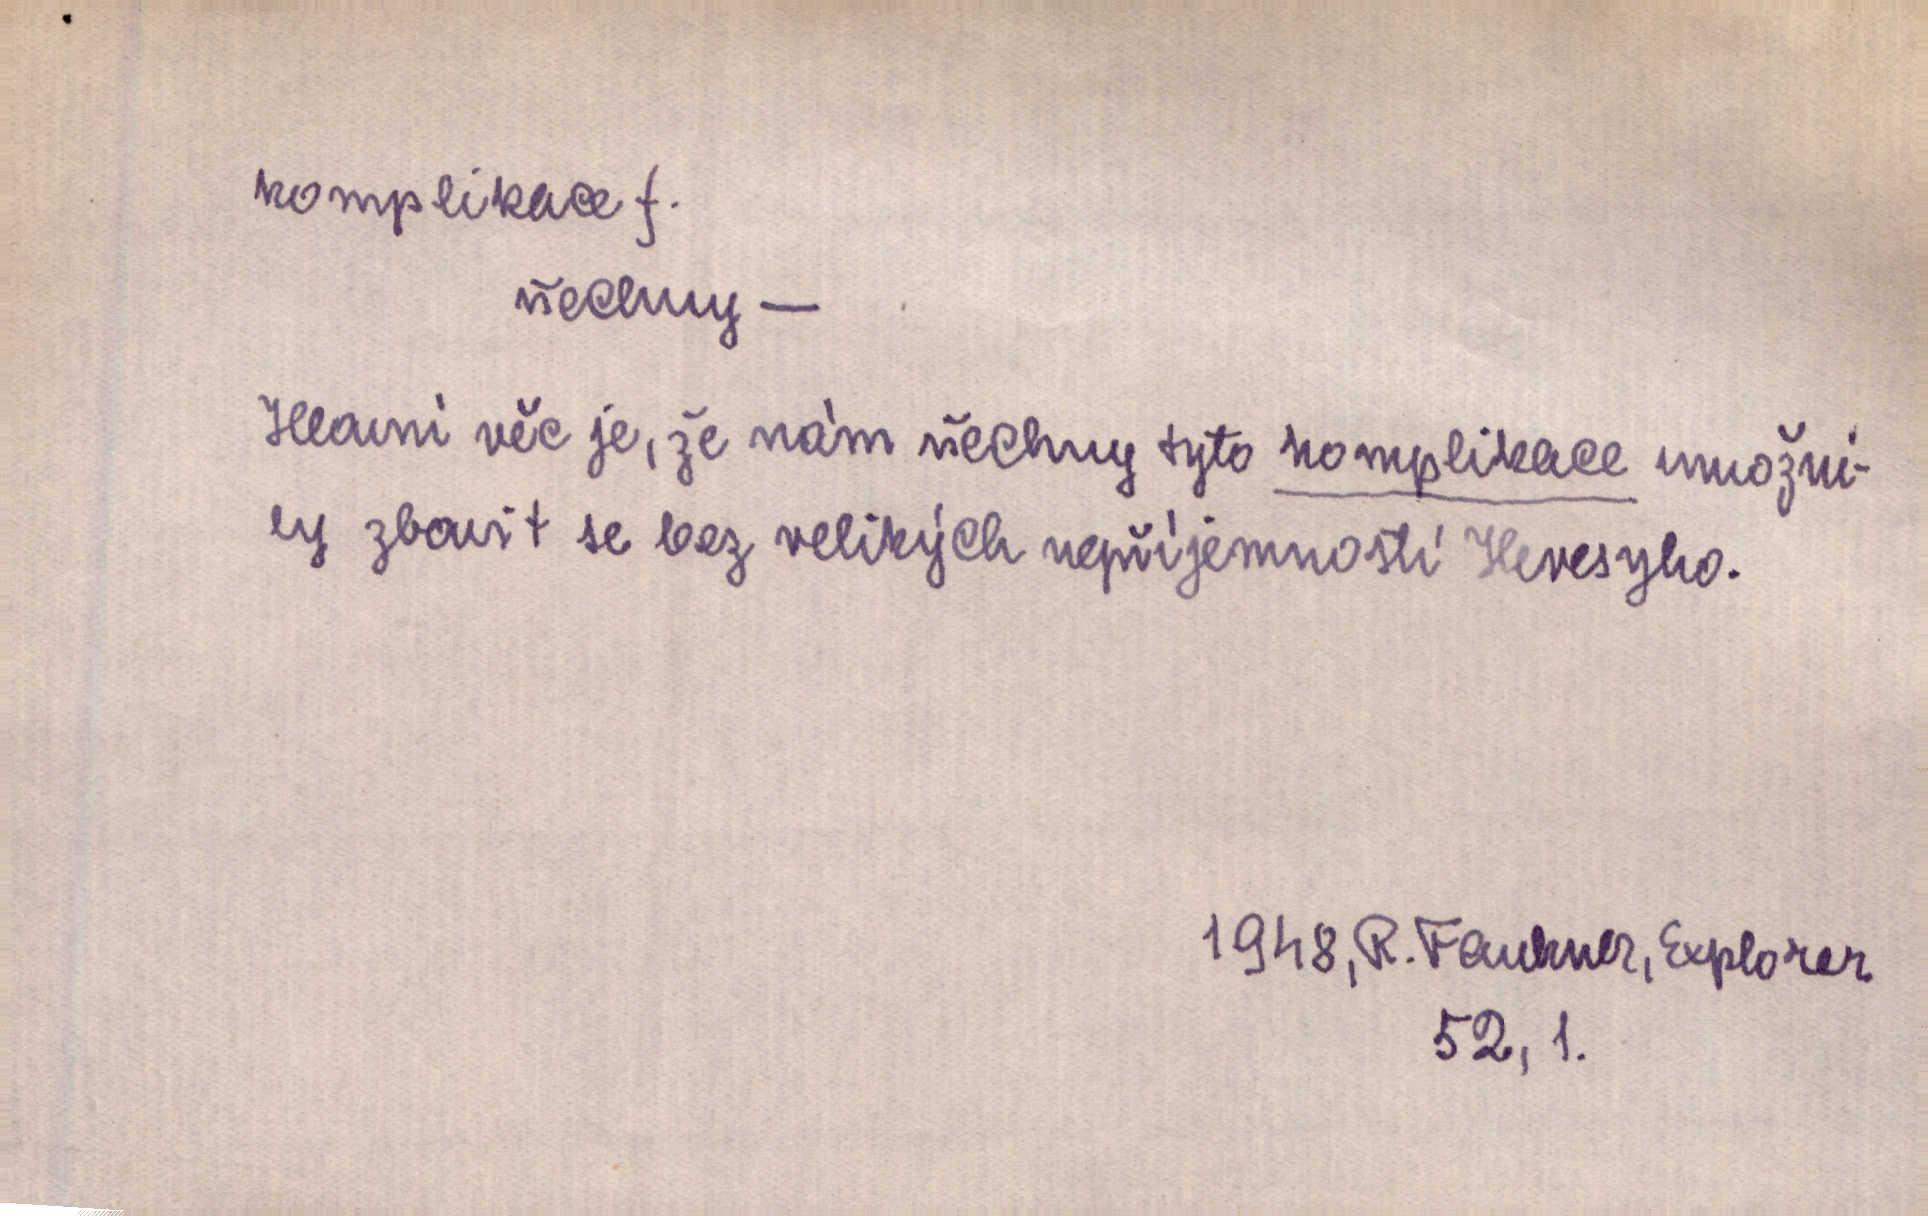 komplikace f.
všechny —
Hlavní věc je, že nám všechny tyto komplikace umožni-
ly zbavit se bez velikých nepříjemností Hevesyho.
1948, R. Faukner, Explorer
52, 1.